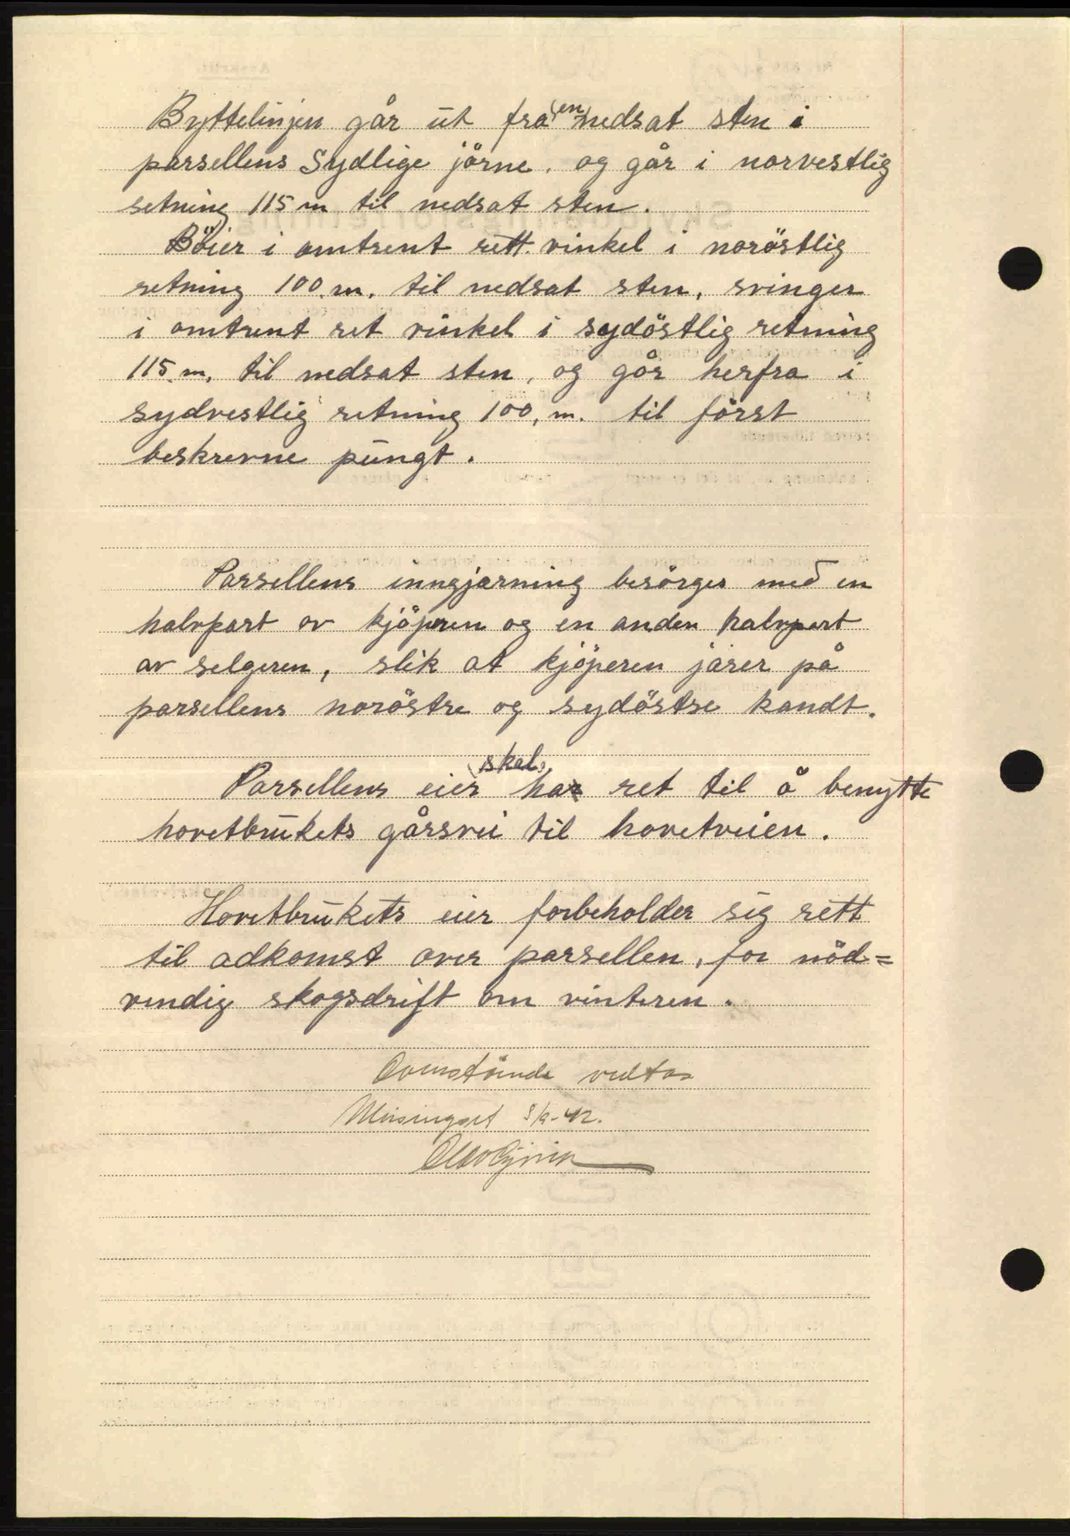 Byttelinjen går ut fra (en) nedsat sten i
parsellens Sydlige jörne, og går i norvestlig
retning 115 m til nedsat sten.
Böier i omtrent rett vinkel i noröstlig
retning 100 m. til nedsat sten, svinger
i omtrent ret vinkel i sydöstlig retning
115 m. til nedsat sten, og går herfra i
sydvestlig retning 100, m. til först
beskrevne pungt.
Parsellens inngjærning besörges med en
halvpart av kjöperen og en anden halvpart
av selgeren, slik at kjöperen jærer på
parsellens noröstre og sydöstre kandt.
Parsellens eier (skal) ha ret til å benytte
hovetbrukets gårsvei til hovetveien.
Hovetbrukets eier forbeholder sig rett
til adkomst over parsellen, for nöd=
vendig skogsdrift om vinteren.
Ovenstående vedtas
Meisingset 5/9-42.